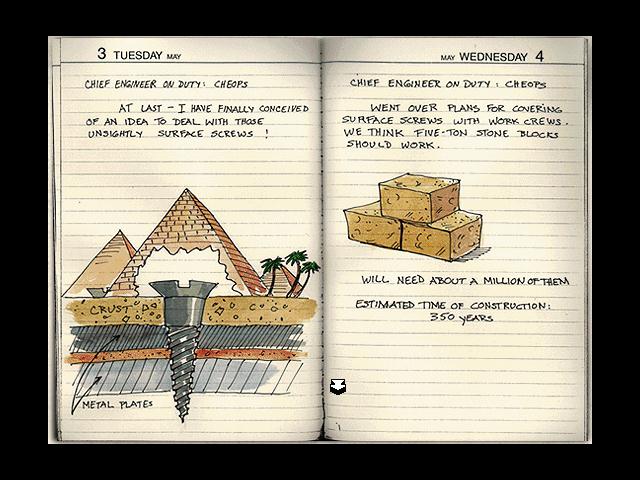 3 TUESDAY MAY
CHIEF ENGINEER ON DUTY: CHEOPS
AT LAST - I HAVE FINALLY CONCEIVED
OF AN IDEA TO DEAL WITH THOSE
UNSIGHTLY SURFACE SCREWS !
CRUST
METAL PLATES
MAY WEDNESDAY 4
CHIEF ENGINEER ON DUTY: CHEOPS
WENT OVER PLANS FOR COVERING
SURFACE SCREWS WITH WORK CREWS.
WE THINK FIVE-TON STONE BLOCKS
SHOULD WORK.
WILL NEED ABOUT A MILLION OF THEM
ESTIMATED TIME OF CONSTRUCTION:
350 YEARS